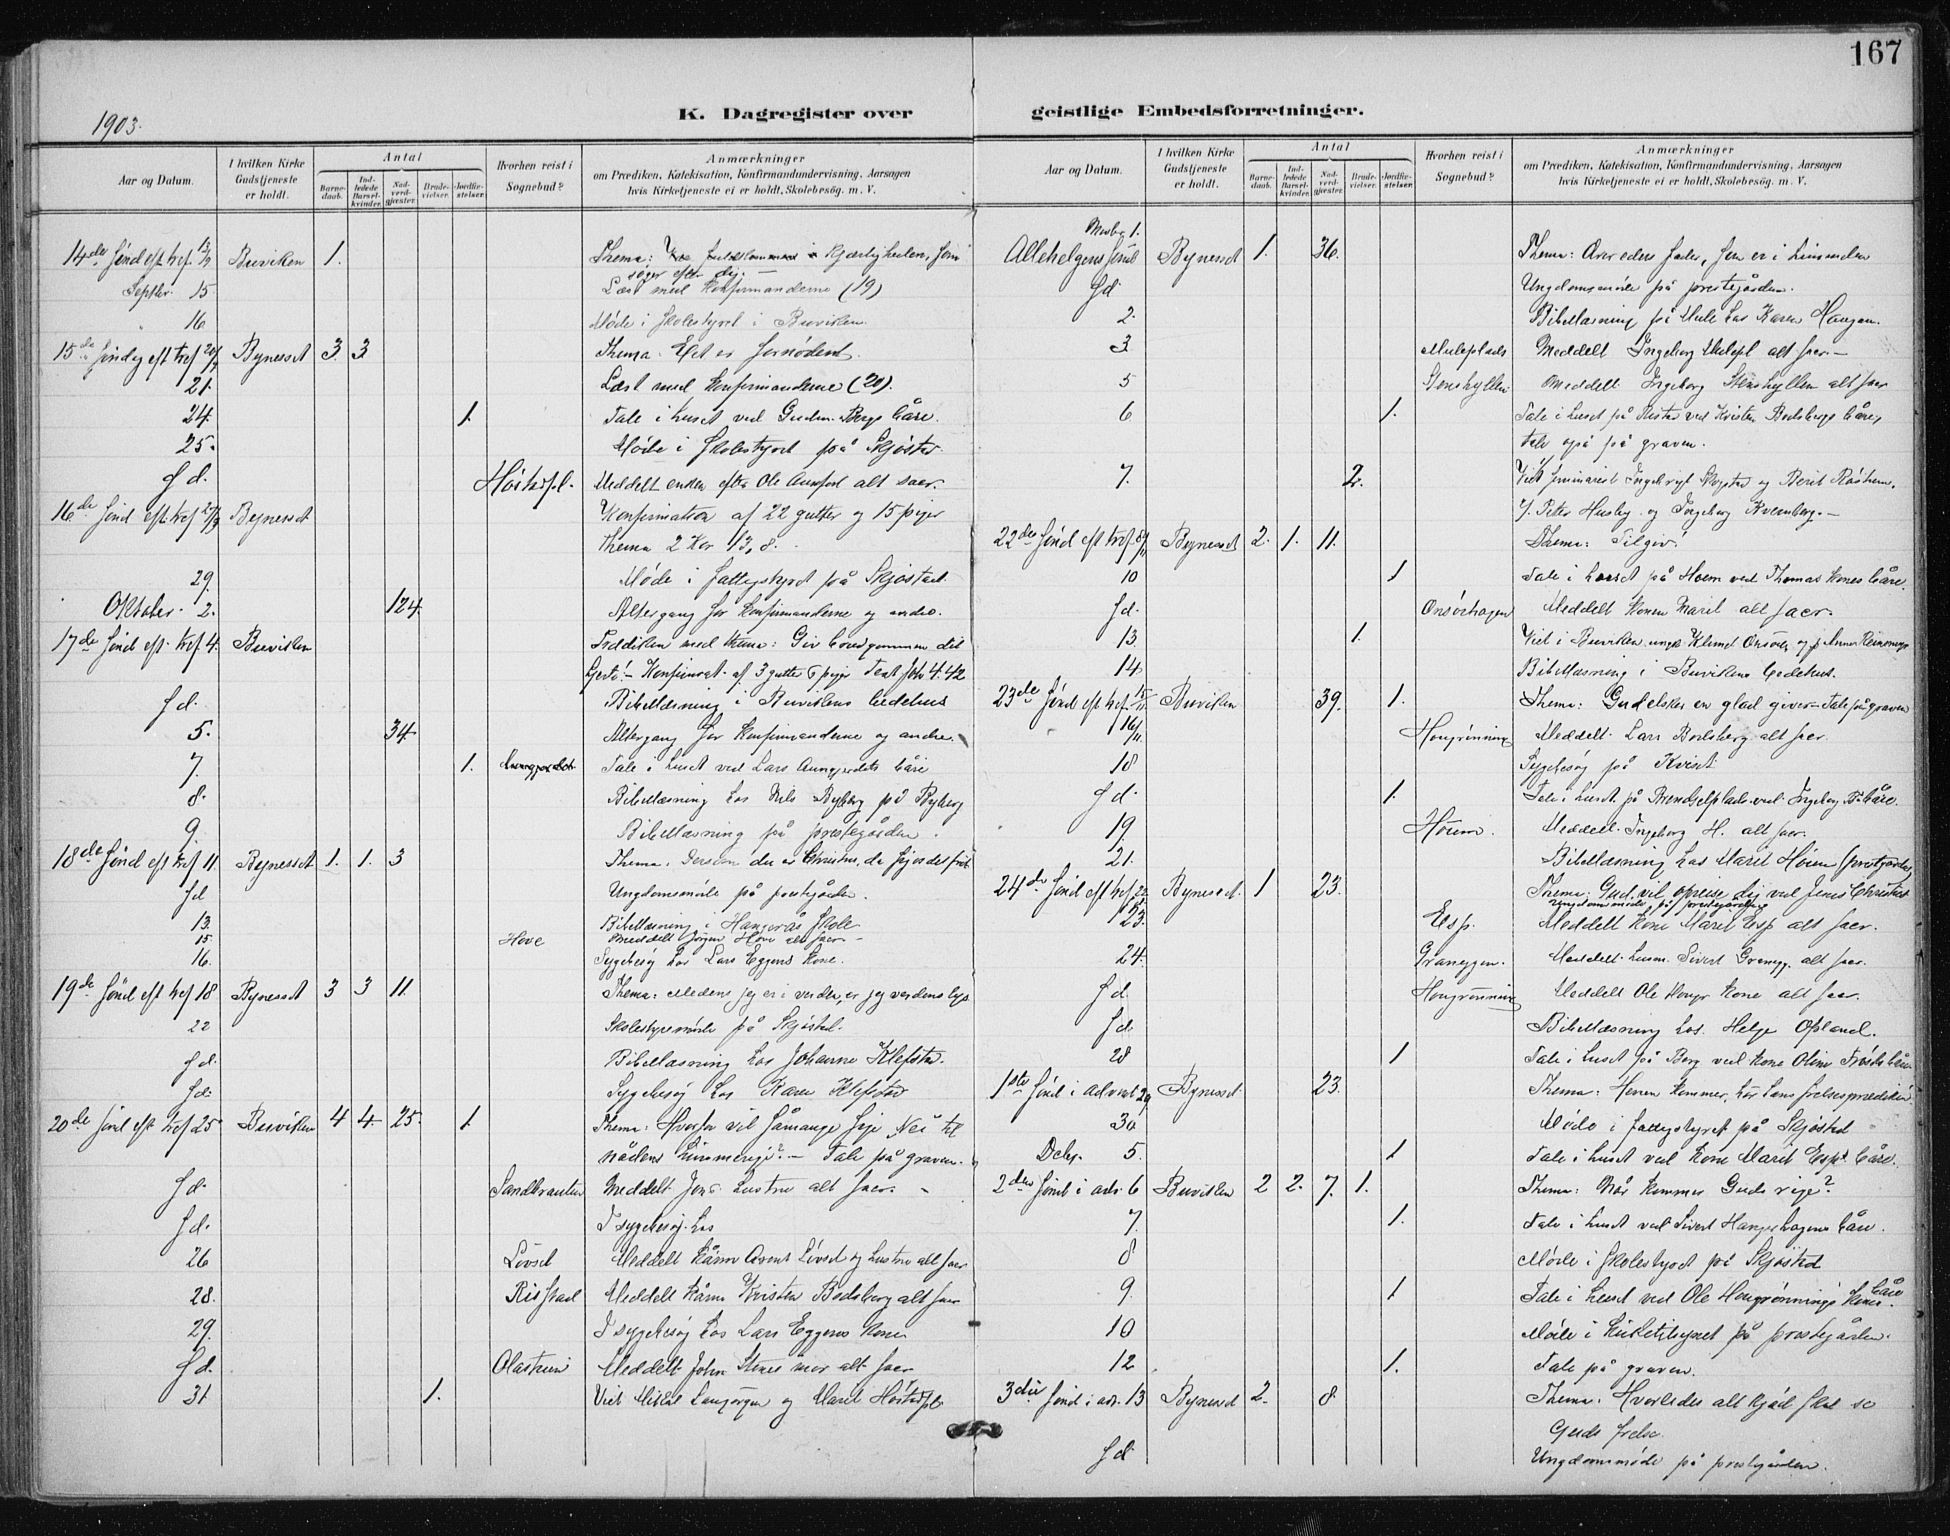 167
1903.
K. Dagregister over geistlige Embedsforretninger.
Aar og Datum.
I hvilken Kirke Gudstjeneste er holdt.
Antal
Barnedaab.
Indledede Barselkvinder.
Nadverdgjæster.
Brudevielser.
Jordfæstelser.
Hvorhen reist i Sognebud?
Anmærkninger
om Prædiken, Katekisation, Konfirmandundervisning, Aarsagen
hvis Kirketjeneste ei er holdt, Skolebesøg. m. V.
14de Sønd eft tref. 13/9 Buviken 1. Thema: Kjærligheden, som
søger efter dig. —
Septbr. 15 Læst med Konfirmanderne (19)
16 Møde i Skolestyret i Buviken.
15de Søndag eft tref 20/9 Bynesset 3. 3 Thema: Et er fornødent.
21. Læst med Konfirmanderne (20).
24. 1. Tale i huset ved Gudm. Bergs båre.
25. Møde i Skolestyret på Skjøstad
S d. Høstadpl. Meddelt enken efter Ole alt saer.
16de Sønd eft. tref 27/9 Bynesset Konfirmation af 22 gutter og 15 piger
Thema 2 Kor 13,8.
29. Møde i fattigstyret på Skjøstad.
Oktober. 2. 124. Altergang for Konfirmanderne og andre.
17de Sønd eft. tref. 4. Buviken Prædiken med thema: Giv brudgommen dit
hjerte! – Konfirmat. af 3 gutter 6 piger Text Joh 4.42
S d. Bibellæsning i Buvikens bedehus
5. 34. Altergang for Konfirmanderne og andre.
7. 1. Tale i huset ved Lars Aungjerdets båre
8. Bibellæsning hos Nils Byberg på Byberg
9. Bibellæsning på prestegården.
18de Sønd eft tref 11. Bynesset 1. 1. 3 Thema: Dersom du er Christus, da sig os det frit
S d Ungdomsmøde på prestgården.
13. Bibellæsning i Hangerås Skole
15. Hove Meddelt Jørgen Hove alt saer –
16. Sygebesøg hos Lars Eggens Kone.
19de Sønd eft tref 18 Bynesset 3 3 11. Thema: Medens jeg er i verden, er jeg verdens lys
22 Skolestyremøde på Skjøstad.
S d. Bibellæsning hos Johanne Klefstad.
S d. Sygebesøg hos Karen Klefstad
20de Sønd eft tref 25. Buviken 4 4. 25. 1. Thema: Hvorfor vil såmange sige Nei til
nådens himmerige? – Tale på graven.
S d. Sandbrauten Meddelt Jens hustru alt saer. –
S d. I sygebesøg hos
26 Løvset Meddelt Kårm Arent Løvset og hustru alt saer
28. Risstad Meddelt Kårm Kristen Bodsberg alt saer
29. I sygebesøg hos Lars Eggens Kone
S d. Meddelt John Stenes mor alt saer
31 1. Viet Mikal Langørgen og Marit Høstadpl.
Aar og Datum.
I hvilken Kirke Gudstjeneste er holdt.
Antal
Barnedaab.
Indledede Barselkvinder.
Nadverdgjæster.
Brudevielser.
Jordfæstelser.
Hvorhen reist i Sognebud?
Anmærkninger
om Prædiken, Katekisation, Konfirmandundervisning, Aarsagen
hvis Kirketjeneste ei er holdt, Skolebesøg. m. V.
Novbr 1.
Allehelgens Bynesset 1. 36. Thema: Ærer eders fader, som er i himmelen
S d. Ungdomsmøde på prestegården.
2. Bibellæsning på Mule hos Karen Haugan.
3 Muleplads Meddelt Ingeborg Mulepl alt saer. –
5 Stenshyllen Meddelt Ingeborg Stenshyllen alt saer
6 1. Tale i huset på Ristad ved Kristen Bodsbergs båre,
tale også på graven.
7. 2. Viet Seminarist Ingebrigt Skogstad og Berit Røstum.
Peter Husby og Ingeborg Kvernberg. –
22de Sønd eft tref. 8/11 Bynesset 2. 1. 11. Thema: Tilgiv!
10 1 Tale i huset på Hoem ved Thomas Kones båre.
S d. Onsørhagen Meddelt Konen Marit alt saer.
13. 1. Viet i Buviken ungk Klemet Onsøen og p. Anna
14. Bibellæsning i Buvikens bedehus.
23de Sønd eft tref. 15/11 Buviken 39. 1. Thema: Gud elsker en glad giver – Tale på graven
16/11. Haugrønning Meddelt Lars Bodsberg alt saer.
18 Sygebesøg på Kvist
S d. 1. Tale i huset på ved Ingeborg båre.
19. Hoem. Meddelt Ingeborg H. alt saer.
21. Bibellæsning hos Marit Høem (prestgården)
24de Sønd eft tref. 22 Bynesset 1 23. Thema: Gud vil opreise dig ved Jesus Christus
Ungdomsmøde på prestegården
23. Esp. Meddelt Kone Marit Esp alt saer.
24. Graneggen. Meddelt husm. Sivert Granegg. alt saer.
S d Haugrønning Meddelt Ole Haugr Kone alt saer.
S d Bibellæsning hos Helge Opland.
28 1 Tale i huset på Berg ved Kone Oline båre
1ste Sønd i advent 29 Bynesset 23. Thema: Herren kommer, hør hans frelsesprædiken
30 Møde i fattigstyret på Skjøstad
Debr. 5. 1 Tale i huset ved Kone Marit Esps båre.
2den Sønd i adv. 6 Buviken 2 2. 7. 1. Thema: Når kommer Guds rige?
7. 1. Tale i huset ved Sivert båre.
8 Møde i Skolestyret på Skjøstad
9. 1 Tale i huset ved Ole Haugrønnings Kones båre
10 Møde i på prestegården.
12 1. Tale på graven.
3die Sønd i adv. 13 Bynesset 2. 8. Thema: Hvorledes alt kjød skal se
Guds frelse.
S d. Ungdomsmøde på prestgården.